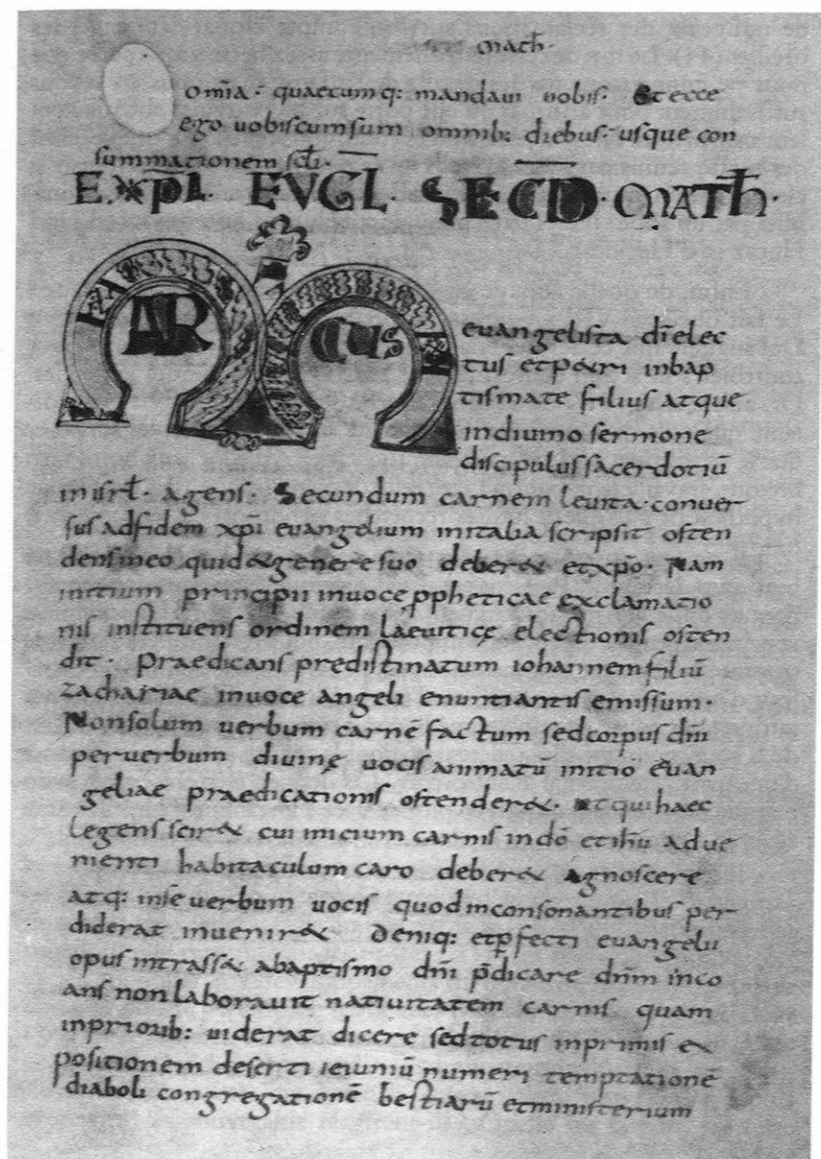 math̅·
omīa· quaecumq: mandavi vobis· Et ecce
ego vobiscumsum omnib: diebus· usque con
summationem sc̅li·
EXP̅L· EVGL· SECD̅· MATH̅·
MARCUS evangelista di̅ elec
tus et p&ri inbap
tismate filius atque
indivino sermone
discipulus sacerdotiū
inisrl̅· agens· Secundum carnem levita· conver
sus adfidem xp̅i evangelium initalia scripsit osten
densineo quid &genere suo deber& etxp̅o· Nam
initium principii invoce ꝓpheticae exclamatio
nis instituens ordinem laeviticę electionis osten
dit· Praedicans predistinatum iohannem filiū
zachariae invoce angeli enuntiantis emissum·
Nonsolum verbum carnē factum sedcorpus dn̅i
perverbum divinę vocis animatū initio evan
geliae praedicationis ostender&· ut quihaec
legens scir& cui inicium carnis indō etih̅u adve
nienti habitaculum caro deber& agnoscere
atq: inse verbum vocis quodinconsonantibus per
diderat invenir& Deniq: etꝑfecti evangelii
opus intrass& abaptismo dn̅i p̅dicare dn̅m inco
ans nonlaboravit nativitatem carnis quam
inpriorib: viderat dicere sedtotus inprimis ex
positionem deserti ieiuniū numeri temptationē
diaboli congregationē bestiarū etministerium